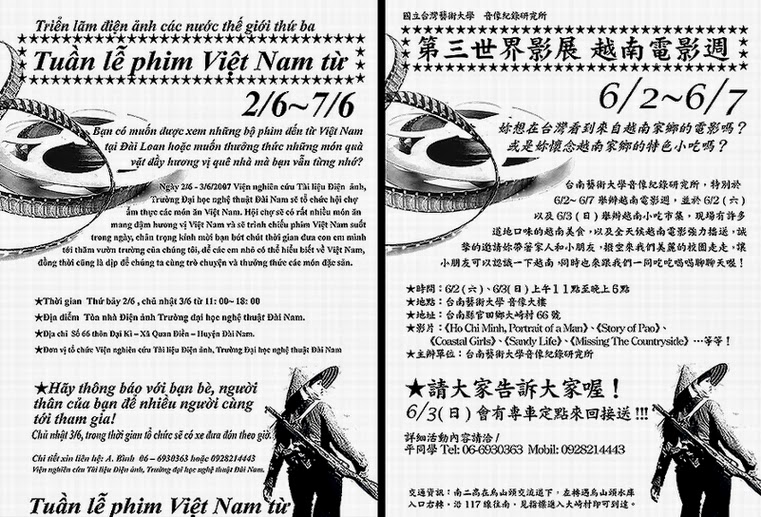 Triển lãm điện ảnh các nước thế giới thứ ba
Tuần lễ phim Việt Nam từ
2/6~7/6
Bạn có muốn được xem những bộ phim đến từ Việt Nam
tại Đài Loan hoặc muốn thưởng thức những món quà
vặt đầy hương vị quê nhà mà bạn vẫn từng nhớ?
Ngày 2/6 - 3/6/2007 Viện nghiên cứu Tài liệu Điện ảnh,
Trường Đại học nghệ thuật Đài Nam sẽ tổ chức hội chợ
ẩm thực các món ăn Việt Nam. Hội chợ sẽ có rất nhiều món ăn
mang đậm hương vị Việt Nam và sẽ trình chiếu phim Việt Nam suốt
trong ngày, chân trọng kính mời bạn bớt chút thời gian đưa con em mình
tới thăm vườn trường của chúng tôi, để các em nhỏ có thể hiểu biết về Việt Nam,
đồng thời cũng là dịp để chúng ta cùng trò chuyện và thưởng thức các món đặc sản.
★Thời gian Thứ bảy 2/6 , chủ nhật 3/6 từ 11: 00~ 18: 00
★Địa điểm Tòa nhà Điện ảnh Trường đại học nghệ thuật Đài Nam.
★Địa chỉ Số 66 thôn Đại Kì – Xã Quan Điền – Huyện Đài Nam.
★Đơn vị tổ chức Viện nghiên cứu Tài liệu Điện ảnh, Trường Đại học nghệ thuật Đài Nam
★Hãy thông báo với bạn bè, người
thân của bạn để nhiều người cùng
tới tham gia!
Chủ nhật 3/6, trong thời gian tổ chức sẽ có xe đưa đón theo giờ.
Chi tiết xin liên hệ: A. Bình 06 – 6930363 hoặc 0928214443
Viện nghiên cứu Tài liệu Điện ảnh, Trường đại học nghệ thuật Đài Nam.
Tuần lễ phim Việt Nam từ
國立台灣藝術大學 音像紀錄研究所
第三世界影展 越南電影週
6/2~6/7
妳想在台灣看到來自越南家鄉的電影嗎?
或是妳懷念越南家鄉的特色小吃嗎?
台南藝術大學音像紀錄研究所,特別於
6/2~ 6/7 舉辦越南電影週,並於 6/2 (六)
以及 6/3 (日) 舉辦越南小吃市集,現場有許多
道地口味的越南美食,以及全天候越南電影強力播送,誠
摯的邀請妳帶著家人和小朋友,撥空來我們美麗的校園走走,讓
小朋友可以認識一下越南,同時也來跟我們一同吃吃喝喝聊聊天喔!
★時間:6/2(六)、6/3(日)上午11點至晚上6點
★地點:台南藝術大學 音像大樓
★地址:台南縣官田鄉大崎村 66 號
★影片:《Ho Chi Minh, Portrait of a Man》、《Story of Pao》、
《Coastal Girls》、《Sandy Life》、《Missing The Countryside》…等等!
★主辦單位:台南藝術大學音像紀錄研究所
★請大家告訴大家喔!
6/3(日)會有專車定點來回接送!!!
詳細活動內容請洽/
平同學 Tel: 06-6930363 Mobil: 0928214443
交通資訊:南二高在烏山頭交流道下,左轉遇烏山頭水庫
入口右轉,沿 117 線往南,見指標進入大崎村即可到達。